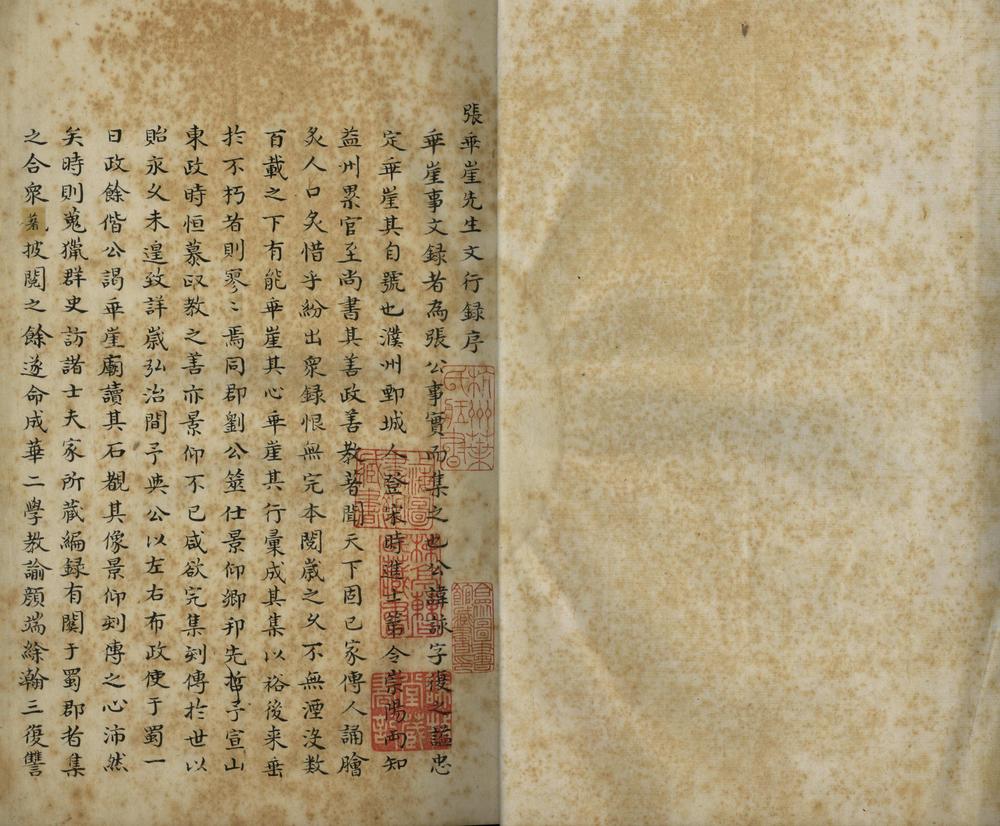 張乖崖先生文行録序
乖崖事文録者為張公事實而集之也公諱詠字復之謚忠
定乖崖其自號也濮州鄄城人登宋時進士第令崇陽両知
益州累官至尚書其善政善教著聞天下固已家傳人誦膾
炙人口炙惜乎紛出衆録恨無完本閱歳之久不無湮沒数
百載之下有能乖崖其心乖崖其行彙成其集以裕後来垂
於不朽者則寥〻焉同郡劉公筮仕景仰鄉邦先哲予宣山
東政時恒慕政教之善亦景仰不已咸欲完集刻傳於世以
貽永久未遑致詳歳弘治間予與公以左右布政使于蜀一
日政餘偕公謁乖崖廟讀其石覩其像景仰刻傳之心沛然
矣時則蒐獵群史訪諸士夫家所蔵編録有関于蜀郡者集
之合衆著披閱之餘遂命成華二學教諭顔端綠瀚三復讐
杭州葉氏蔵書